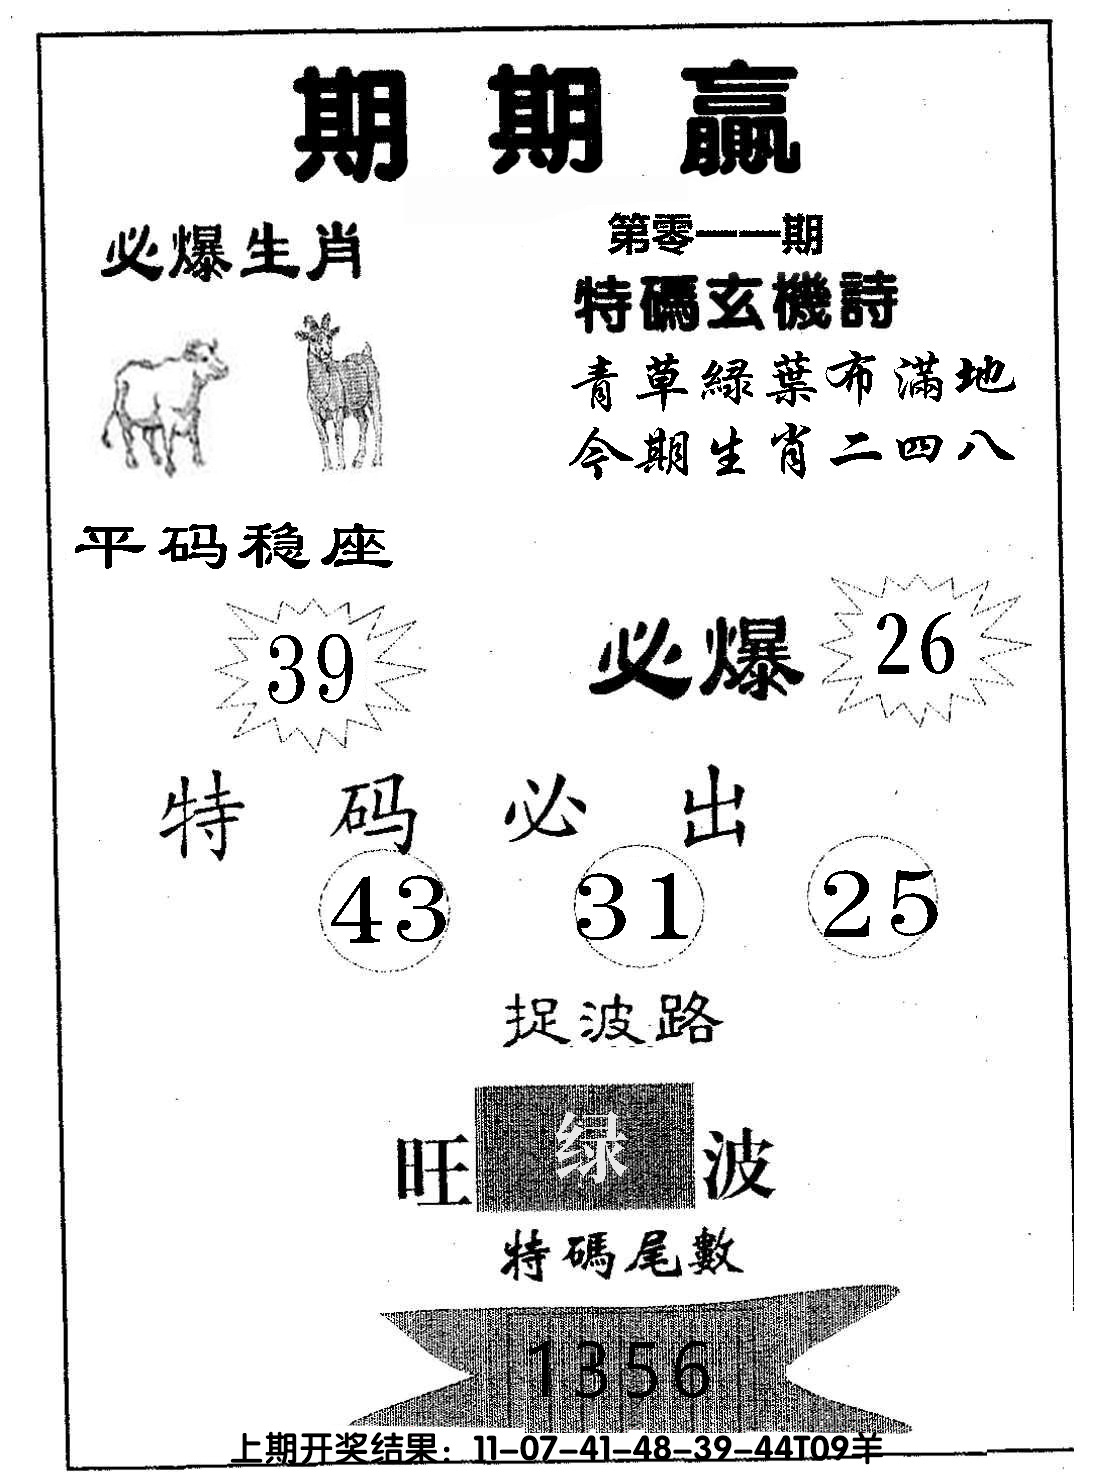 期期贏
必爆生肖
第零一一期
特碼玄機詩
青草緑葉布滿地
今期生肖二四八
平码稳座
39
必爆
26
特码必出
43 31 25
捉波路
旺绿波
特碼尾數
1356
上期开奖结果：11-07-41-48-39-44T09羊